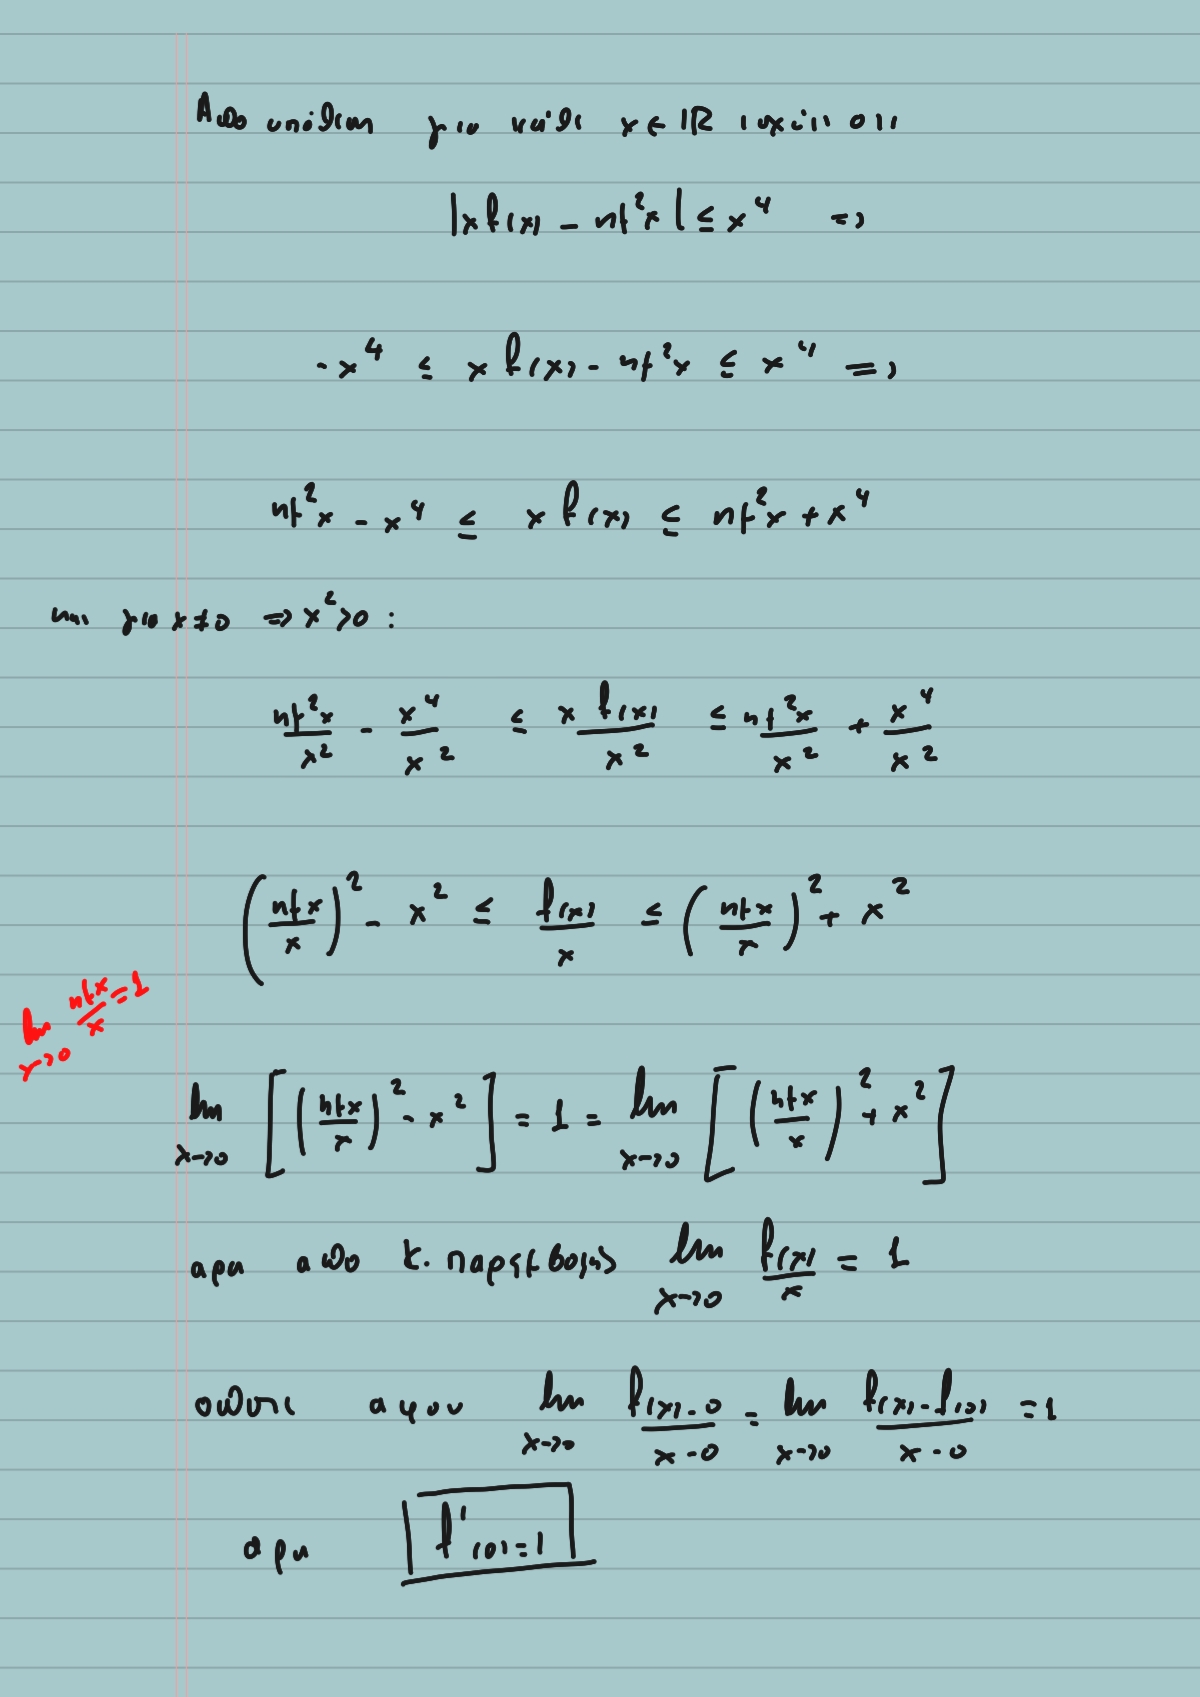 Από υπόθεση για κάθε x ∈ ℝ ισχύει ότι
|x f(x) - ημ²x| ≤ x⁴ =>
-x⁴ ≤ x f(x) - ημ²x ≤ x⁴ =>
ημ²x - x⁴ ≤ x f(x) ≤ ημ²x + x⁴
και για x ≠ 0 => x² > 0 :
ημ²x/x² - x⁴/x² ≤ x f(x)/x² ≤ ημ²x/x² + x⁴/x²
(ημx/x)² - x² ≤ f(x)/x ≤ (ημx/x)² + x²
lim x→0 ημx/x = 1
lim x→0 [(ημx/x)² - x²] = 1 = lim x→0 [(ημx/x)² + x²]
αρα απο κ. παρεμβολης lim x→0 f(x)/x = 1
οποτε αφου lim x→0 f(x)-0/x-0 = lim x→0 f(x)-f(0)/x-0 = 1
αρα f'(0) = 1